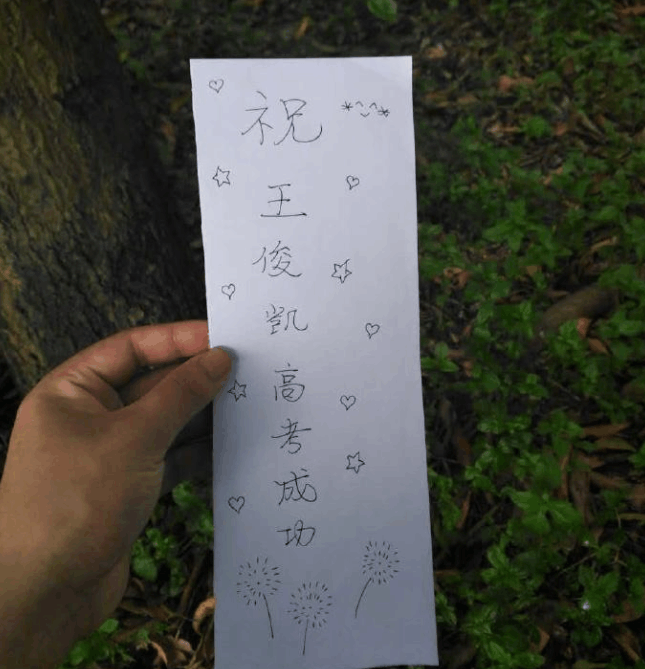 祝
王俊凯高考成功